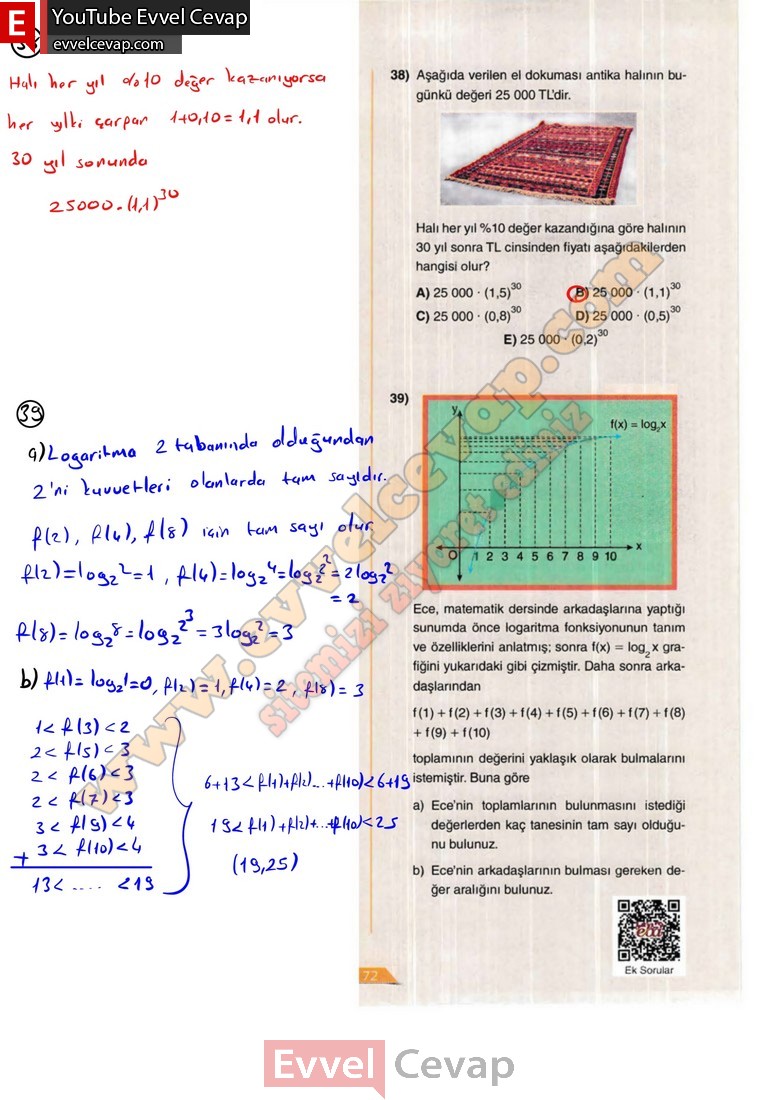 YouTube Evvel Cevap
evvelcevap.com
Halı her yıl %10 değer kazanıyorsa
her yılki çarpan 1+0,10=1,1 olur.
30 yıl sonunda
25000.(1,1)^30
38) Aşağıda verilen el dokuması antika halının bu-
günkü değeri 25 000 TL'dir.
Halı her yıl %10 değer kazandığına göre halının
30 yıl sonra TL cinsinden fiyatı aşağıdakilerden
hangisi olur?
A) 25 000 · (1,5)^30 B) 25 000 · (1,1)^30
C) 25 000 · (0,8)^30 D) 25 000 · (0,5)^30
E) 25 000 · (0,2)^30
39
a) Logaritma 2 tabanında olduğundan
2'ni kuvvetleri olanlarda tam sayıdır.
f(2), f(4), f(8) için tam sayı olur
f(2)=log₂2=1, f(4)=log₂4=log₂2²=2log₂2
=2
f(8)=log₂8=log₂2³=3log₂2=3
b) f(1)=log₂1=0, f(2)=1, f(4)=2, f(8)=3
1<f(3)<2
2<f(5)<3
2<f(6)<3
2<f(7)<3
3<f(9)<4
+ 3<f(10)<4
13< .... <19
6+13<f(1)+f(2)...+f(10)<6+19
19<f(1)+f(2)+...+f(10)<25
(19,25)
39)
y
f(x) = log₂x
O 1 2 3 4 5 6 7 8 9 10 x
Ece, matematik dersinde arkadaşlarına yaptığı
sunumda önce logaritma fonksiyonunun tanım
ve özelliklerini anlatmış; sonra f(x) = log₂x gra-
fiğini yukarıdaki gibi çizmiştir. Daha sonra arka-
daşlarından
f(1) + f(2) + f(3) + f(4) + f(5) + f(6) + f(7) + f(8)
+ f(9) + f(10)
toplamının değerini yaklaşık olarak bulmalarını
istemiştir. Buna göre
a) Ece'nin toplamlarının bulunmasını istediği
değerlerden kaç tanesinin tam sayı olduğu-
nu bulunuz.
b) Ece'nin arkadaşlarının bulması gereken de-
ğer aralığını bulunuz.
eba
Ek Sorular
72
www.evvelcevap.com
sitemizi ziyaret ediniz
Evvel Cevap